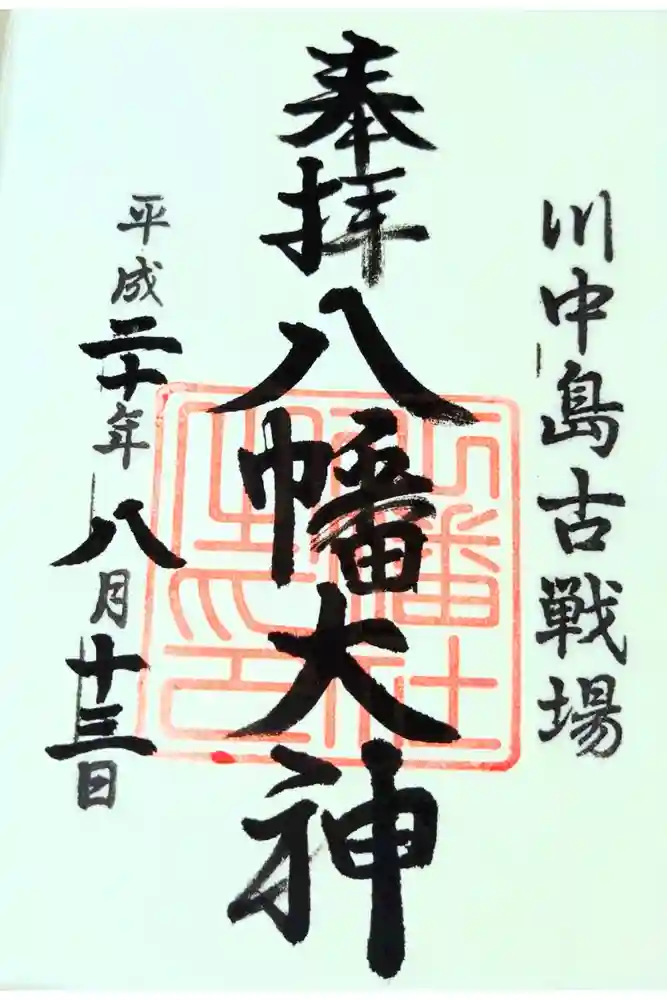 川中島古戦場
奉拝 八幡大神
平成二十年八月十三日